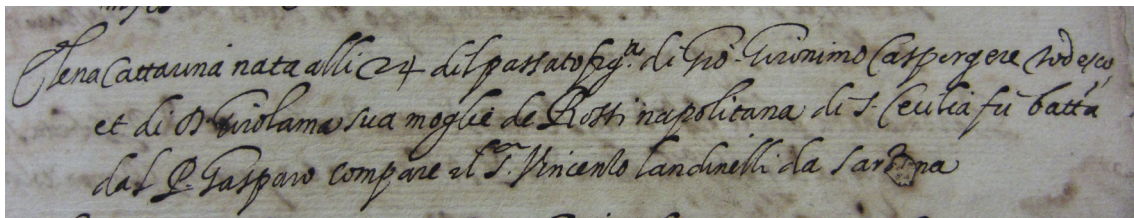 Elena Cattarina nata alli 24 del passato fig.a di Gio: Gironimo Caspergere Todesco
et di D. Girolama sua moglie de Rossi napolitana di S. Cecilia fù batt.ta
dal P. Gasparo compare il S.r Vincenzo Landinelli da Sarzana